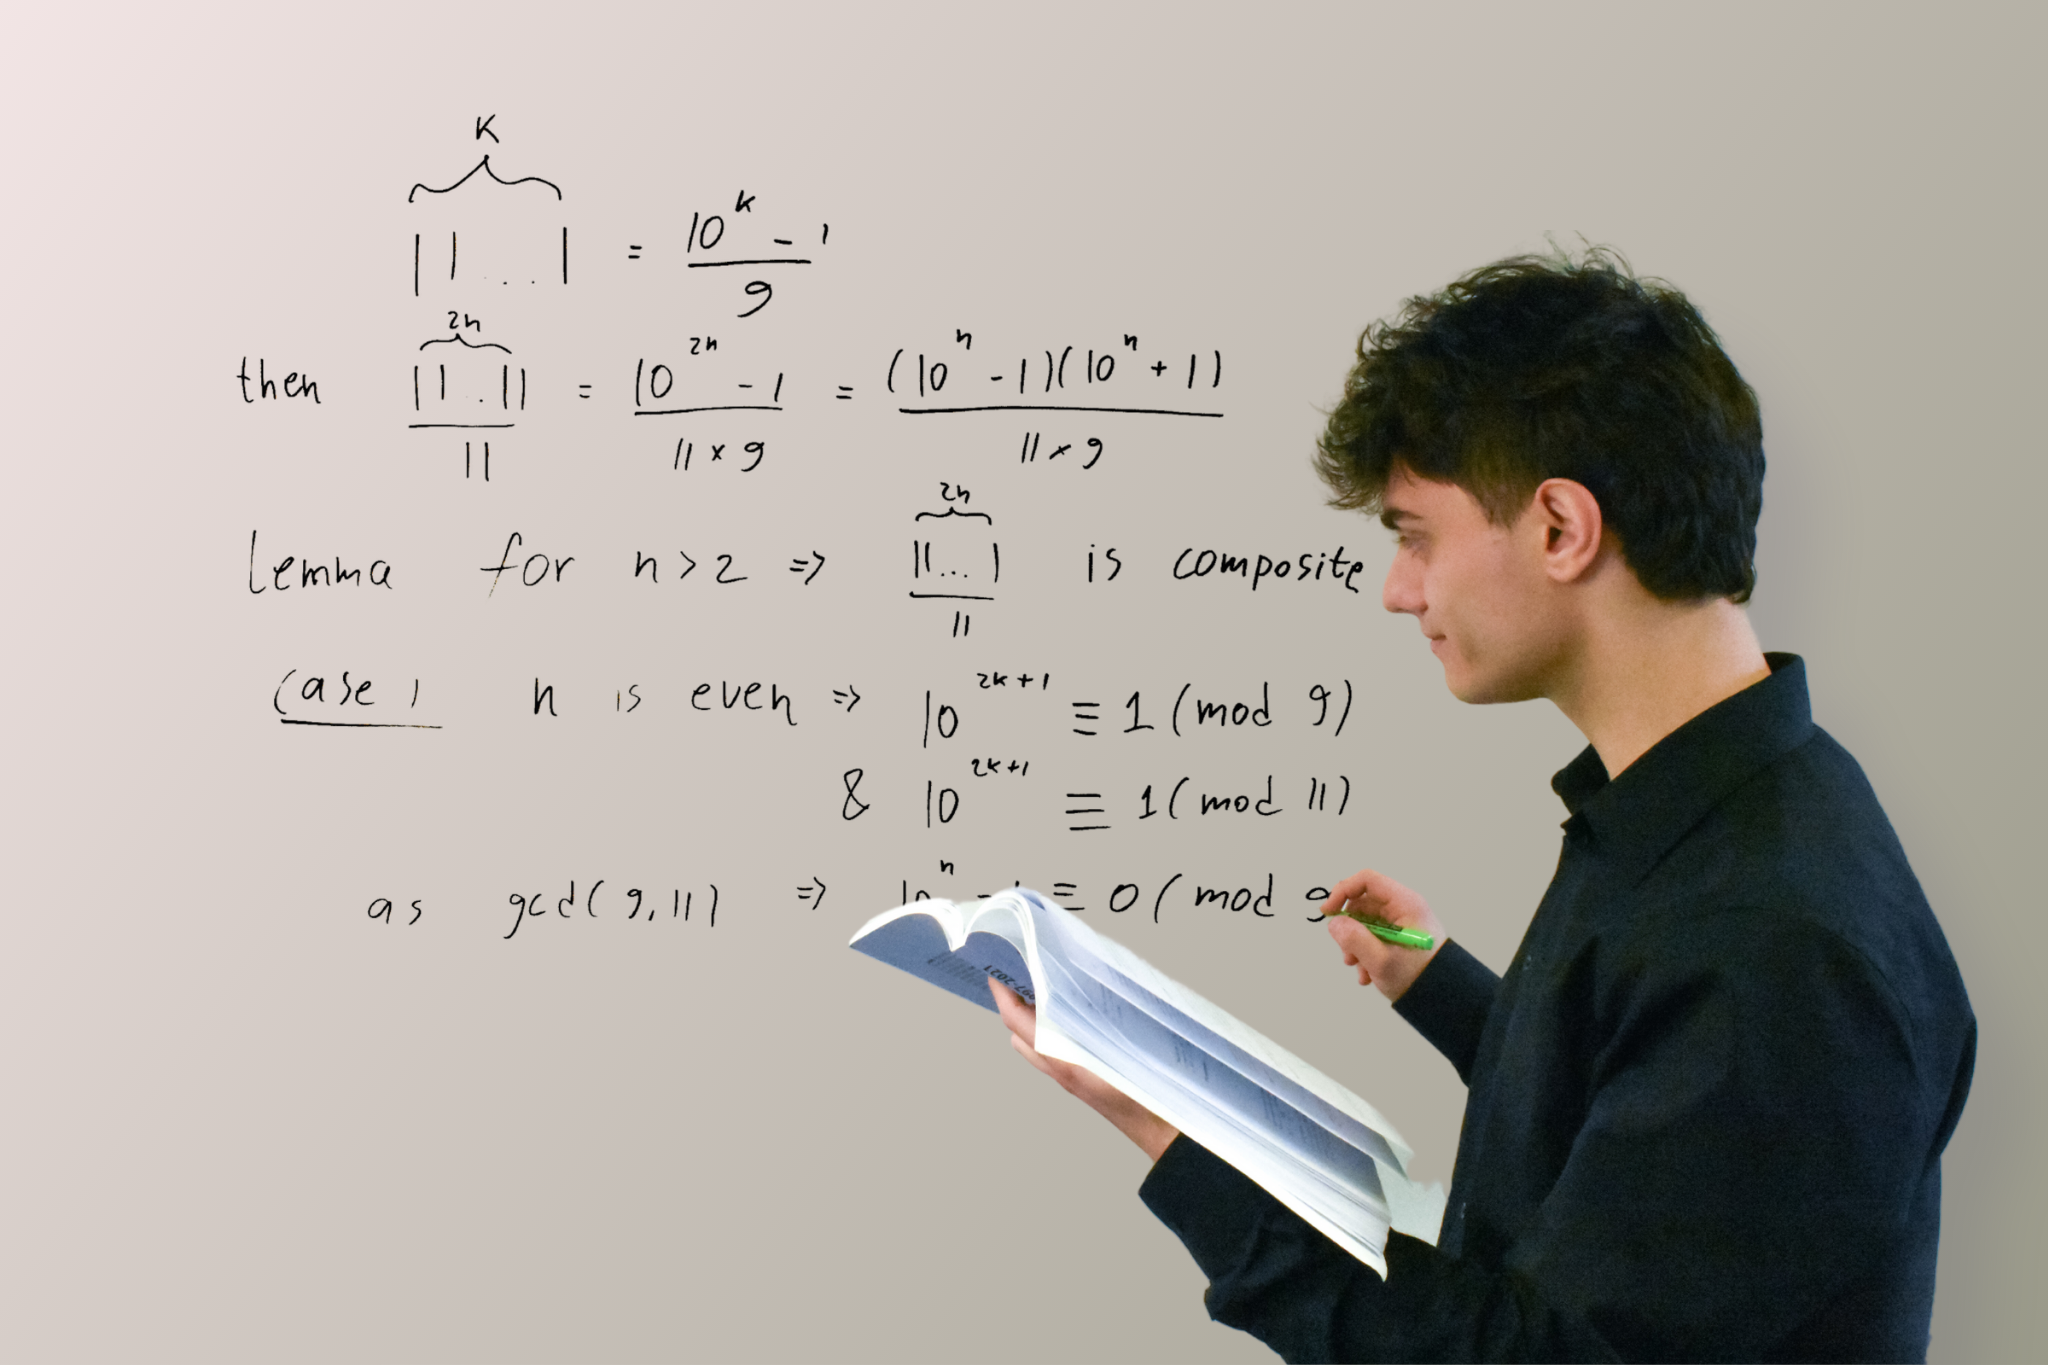 K
11...1 = (10^k - 1)/9
then 11..11 (2n) / 11 = (10^2n - 1)/(11 × 9) = (10^n - 1)(10^n + 1)/(11 × 9)
Lemma for n > 2 => 11...1 (2n) / 11 is composite
Case 1 n is even => 10^2k+1 ≡ 1 (mod 9)
& 10^2k+1 ≡ 1 (mod 11)
as gcd(9,11) => 10^n - 1 ≡ 0 (mod 9